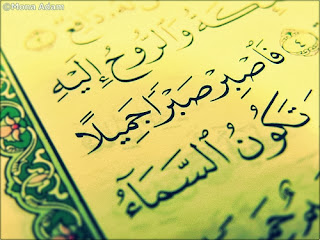 ©Mona Adam
ئكة والروح إليه
فَاصْبِرْ صَبْرًا جَمِيلًا
تَكُونُ السَّمَاءُ